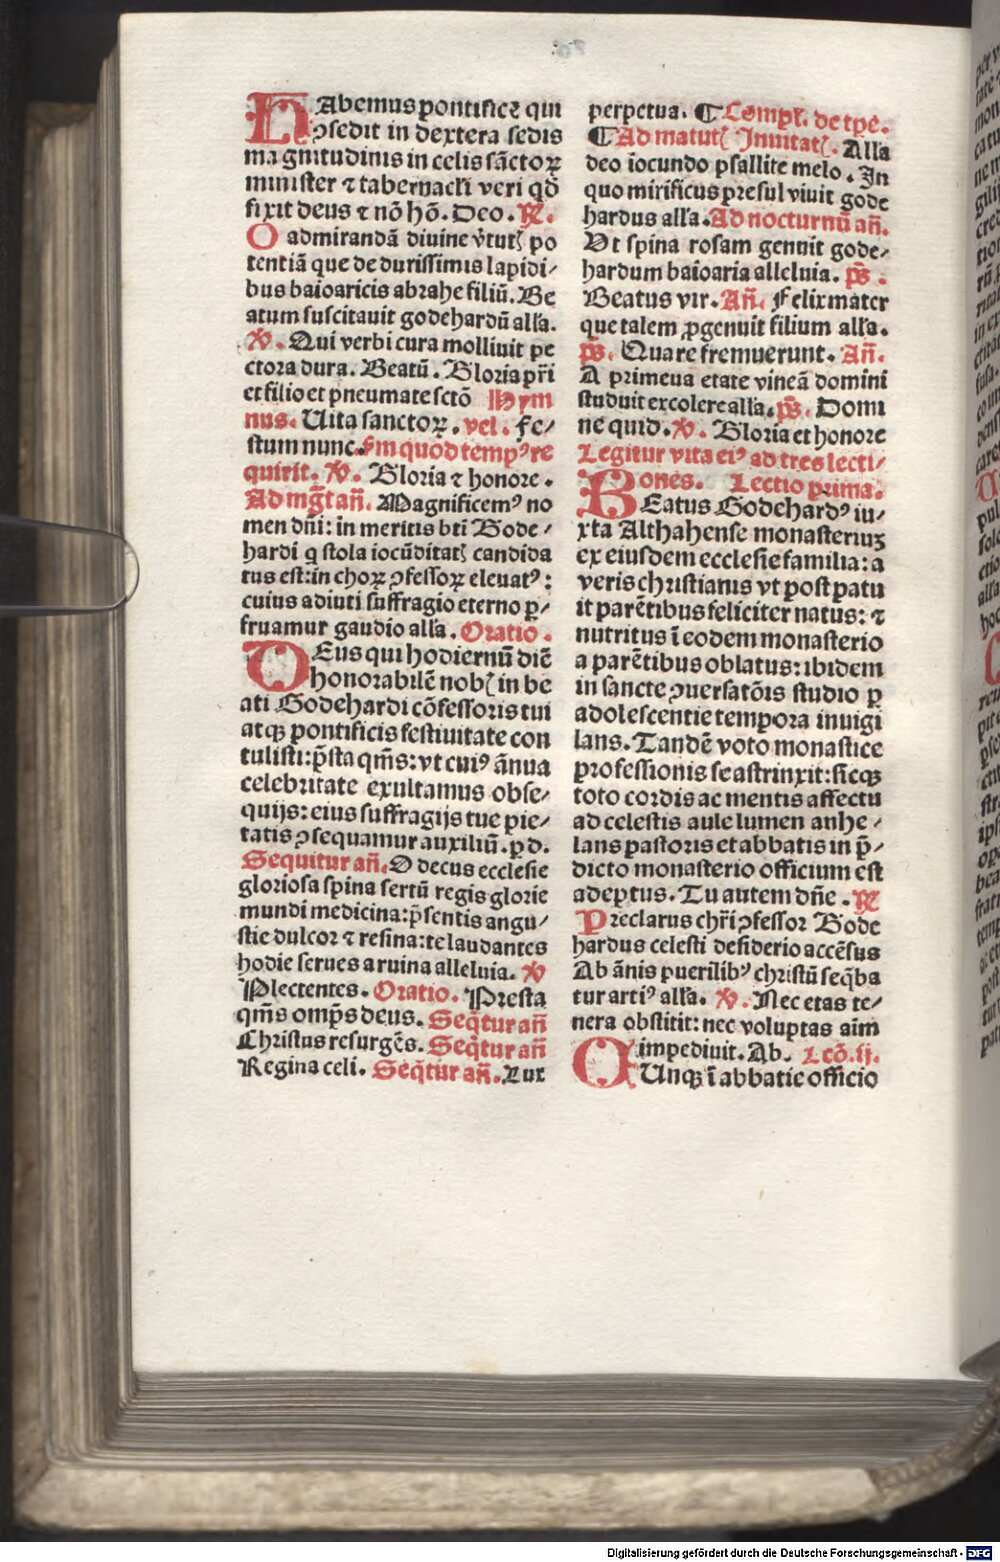 HAbemus pontificē qui
ↄsedit in dextera sedis
magnitudinis in celis sāctoꝝ
minister ⁊ tabernacłi veri qđ
fixit deus ⁊ nō hō. Deo. ℟.
O admirandā diuine v̓tutꝭ po
tentiā que de durissimis lapidi⸗
bus baioaricis abrahe filiū. Be
atum suscitauit godehardū alła.
℣. Qui verbi cura molliuit pe
ctora dura. Beatū. Gloria pr̄i
et filio et pneumate sctō Hym
nus. Uita sanctoꝝ. vel. Fe⸗
stum nunc. Fm quod tempꝰ re
quirit. ℣. Gloria ⁊ honore.
Ad mg̅t an̄. Magnificemꝰ no
men dn̄i: in meritis bt̄i Gode⸗
hardi q̄ stola iocūditatꝭ candida
tus est: in choꝝ ↄfessoꝝ eleuatꝰ:
cuius adiuti suffragio eterno ꝑ⸗
fruamur gaudio alła. Oratio.
DEus qui hodiernū diē
honorabilē nobꝭ in be
ati Godehardi cōfessoris tui
atqꝫ pontificis festiuitate con
tulisti: p̄sta qm̄s: vt cuiꝰ ānua
celebritate exultamus obse⸗
quijs: eius suffragijs tue pie⸗
tatis ↄsequamur auxiliū. ꝑ d.
Sequitur an̄. O decus ecclesie
gloriosa spina sertū regis glorie
mundi medicina: p̄sentis angu⸗
stie dulcor ⁊ resina: te laudantes
hodie serues a ruina alleluia. ℣
Plectentes. Oratio. Presta
qm̄s omp̄s deus. Seq̄tur an̄
Christus resurgēs. Seq̄tur an̄
Regina celi. Seq̄tur an̄. Lux
perpetua. ¶ Compł. de tpe.
¶ Ad matutꝭ Inuitatꝭ. Alla
deo iocundo psallite melo. In
quo mirificus presul viuit gode
hardus alła. Ad nocturnū an̄.
Vt spina rosam genuit gode⸗
hardum baioaria alleluia. p̄s.
Beatus vir. An̄. Felix mater
que talem ꝓgenuit filium alła.
p̄s. Quare fremuerunt. An̄.
A primeua etate vineā domini
studuit excolere alła. p̄s. Domi
ne quid. ℣. Gloria et honore
Legitur vita eiꝰ ad tres lecti⸗
ones. Lectio prima.
BEatus Godehardꝰ iu⸗
xta Althahense monasteriuꝫ
ex eiusdem ecclesie familia: a
veris christianis vt post patu
it parētibus feliciter natus: ⁊
nutritus ī eodem monasterio
a parētibus oblatus: ibidem
in sancte ↄuersatōis studio ꝑ
adolescentie tempora inuigi
lans. Tandē voto monastice
professionis se astrinxit: sicqꝫ
toto cordis ac mentis affectu
ad celestis aule lumen anhe⸗
lans pastoris et abbatis in p̄⸗
dicto monasterio officium est
adeptus. Tu autem dn̄e. ℟
Preclarus chr̄i ↄfessor Gode
hardus celesti desiderio accēsus
Ab ānis puerilibꝰ christū seq̄ba
tur artiꝰ alła. ℣. Nec etas te⸗
nera obstitit: nec voluptas aim
impediuit. Ab. Lcō. ij.
CUnqꝫ ī abbatie officio
Digitalisierung gefördert durch die Deutsche Forschungsgemeinschaft - DFG